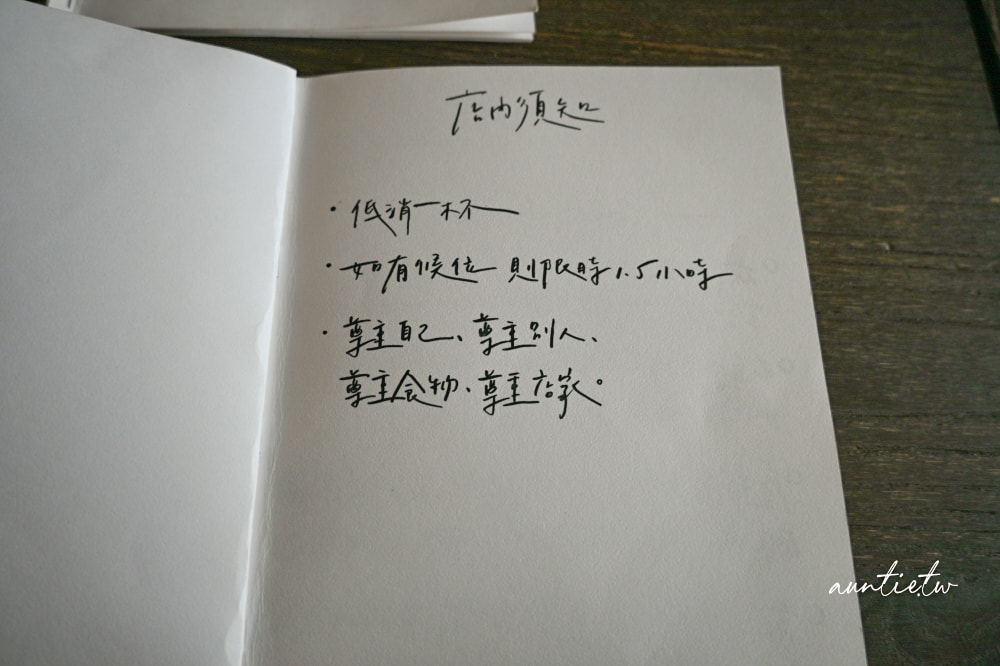 店內須知
・低消一杯
・如有候位 則限時1.5小時
・尊重自己、尊重別人、
尊重食物、尊重店家。
auntie.tw